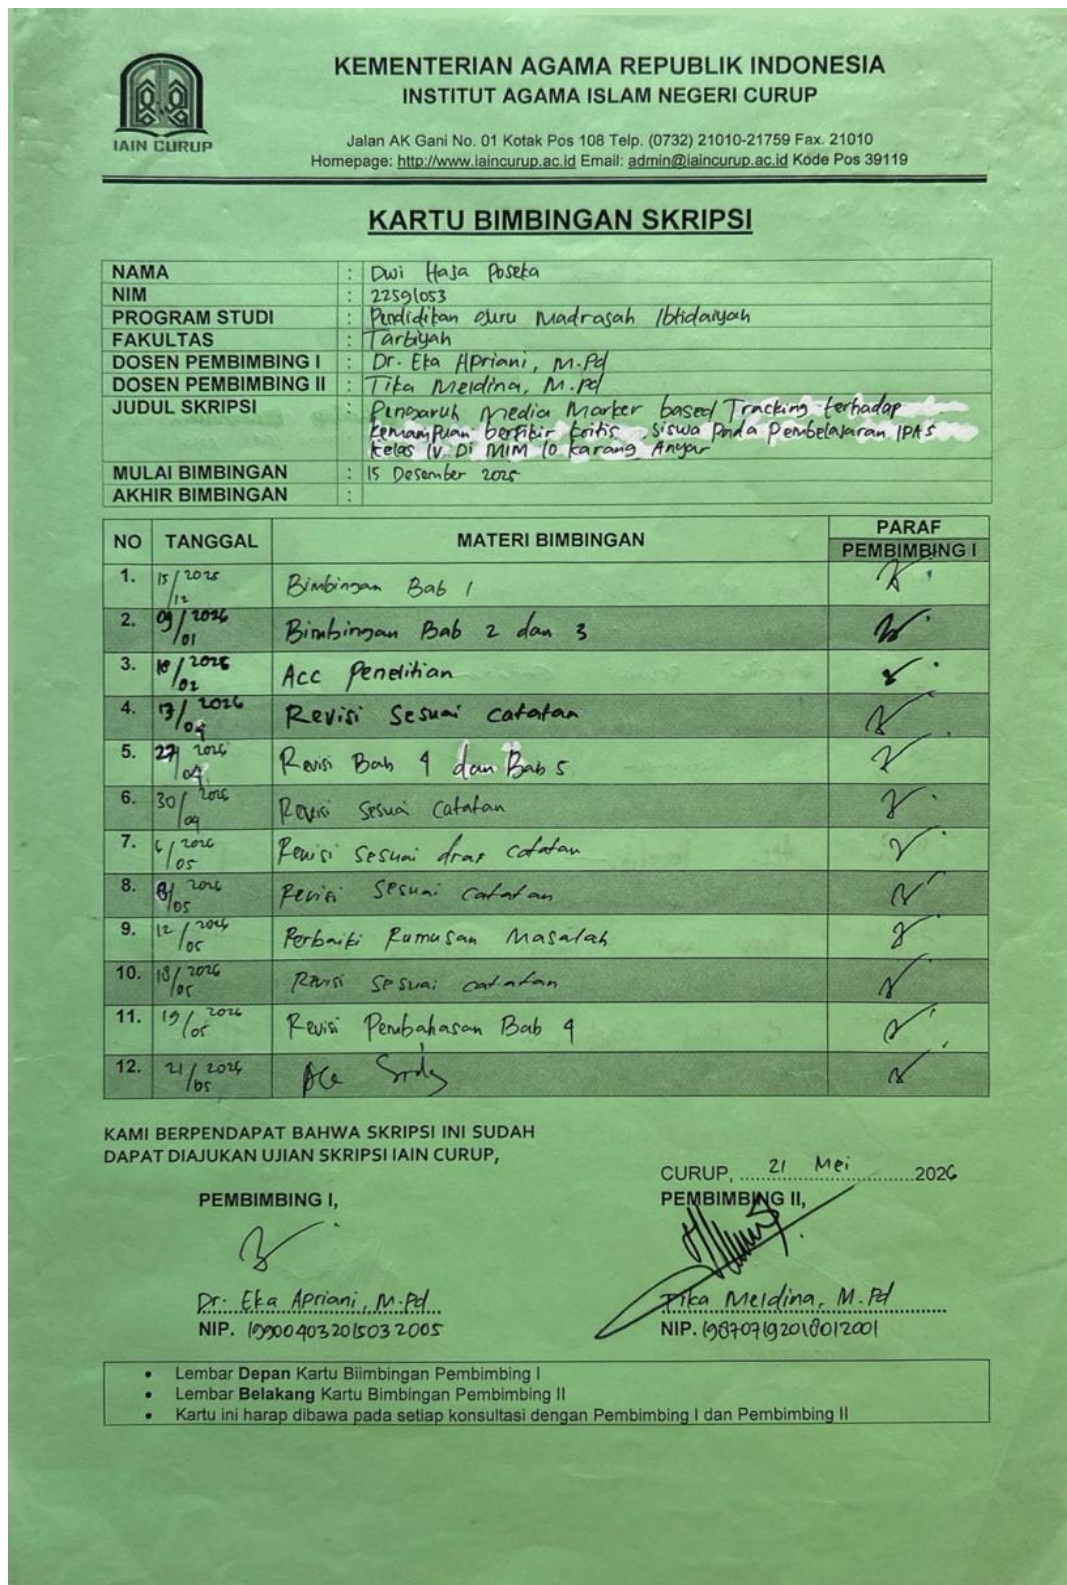 KEMENTERIAN AGAMA REPUBLIK INDONESIA
INSTITUT AGAMA ISLAM NEGERI CURUP
IAIN CURUP
Jalan AK Gani No. 01 Kotak Pos 108 Telp. (0732) 21010-21759 Fax. 21010
Homepage: http://www.iaincurup.ac.id Email: admin@iaincurup.ac.id Kode Pos 39119
KARTU BIMBINGAN SKRIPSI
NAMA : Dwi Hasa Poseka
NIM : 22591053
PROGRAM STUDI : Pendidikan Guru Madrasah Ibtidaiyah
FAKULTAS : Tarbiyah
DOSEN PEMBIMBING I : Dr. Eka Apriani, M.Pd
DOSEN PEMBIMBING II : Tika Meldina, M.Pd
JUDUL SKRIPSI : Pengaruh Media Marker based Tracking terhadap
kemampuan berfikir kritis siswa pada Pembelajaran IPAS
kelas IV Di MIM 10 Karang Anyar
MULAI BIMBINGAN : 15 Desember 2025
AKHIR BIMBINGAN :
NO TANGGAL MATERI BIMBINGAN PARAF
PEMBIMBING I
1. 15/12 2025 Bimbingan Bab 1
2. 09/01 2026 Bimbingan Bab 2 dan 3
3. 18/02 2026 Acc Penelitian
4. 17/04 2026 Revisi Sesuai catatan
5. 27/04 2026 Revisi Bab 4 dan Bab 5
6. 30/04 2026 Revisi sesuai catatan
7. 6/05 2026 Revisi sesuai draf catatan
8. 8/05 2026 Revisi sesuai catatan
9. 12/05 2026 Perbaiki Rumusan Masalah
10. 18/05 2026 Revisi sesuai catatan
11. 19/05 2026 Revisi Pembahasan Bab 4
12. 21/05 2026 Acc
KAMI BERPENDAPAT BAHWA SKRIPSI INI SUDAH
DAPAT DIAJUKAN UJIAN SKRIPSI IAIN CURUP,
CURUP, 21 Mei 2026
PEMBIMBING I, PEMBIMBING II,
Dr. Eka Apriani, M.Pd Tika Meldina, M.Pd
NIP. 199004032015032005 NIP. 198707192018012001
• Lembar Depan Kartu Biimbingan Pembimbing I
• Lembar Belakang Kartu Bimbingan Pembimbing II
• Kartu ini harap dibawa pada setiap konsultasi dengan Pembimbing I dan Pembimbing II